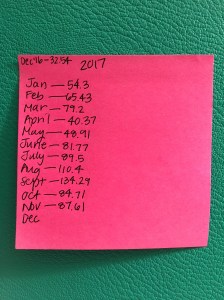 Dec '16 - 32.54 2017
Jan - 54.3
Feb - 65.43
Mar - 79.2
April - 40.37
May - 48.91
June - 81.77
July - 89.5
Aug - 110.4
Sept - 134.29
Oct - 84.71
Nov - 87.61
Dec